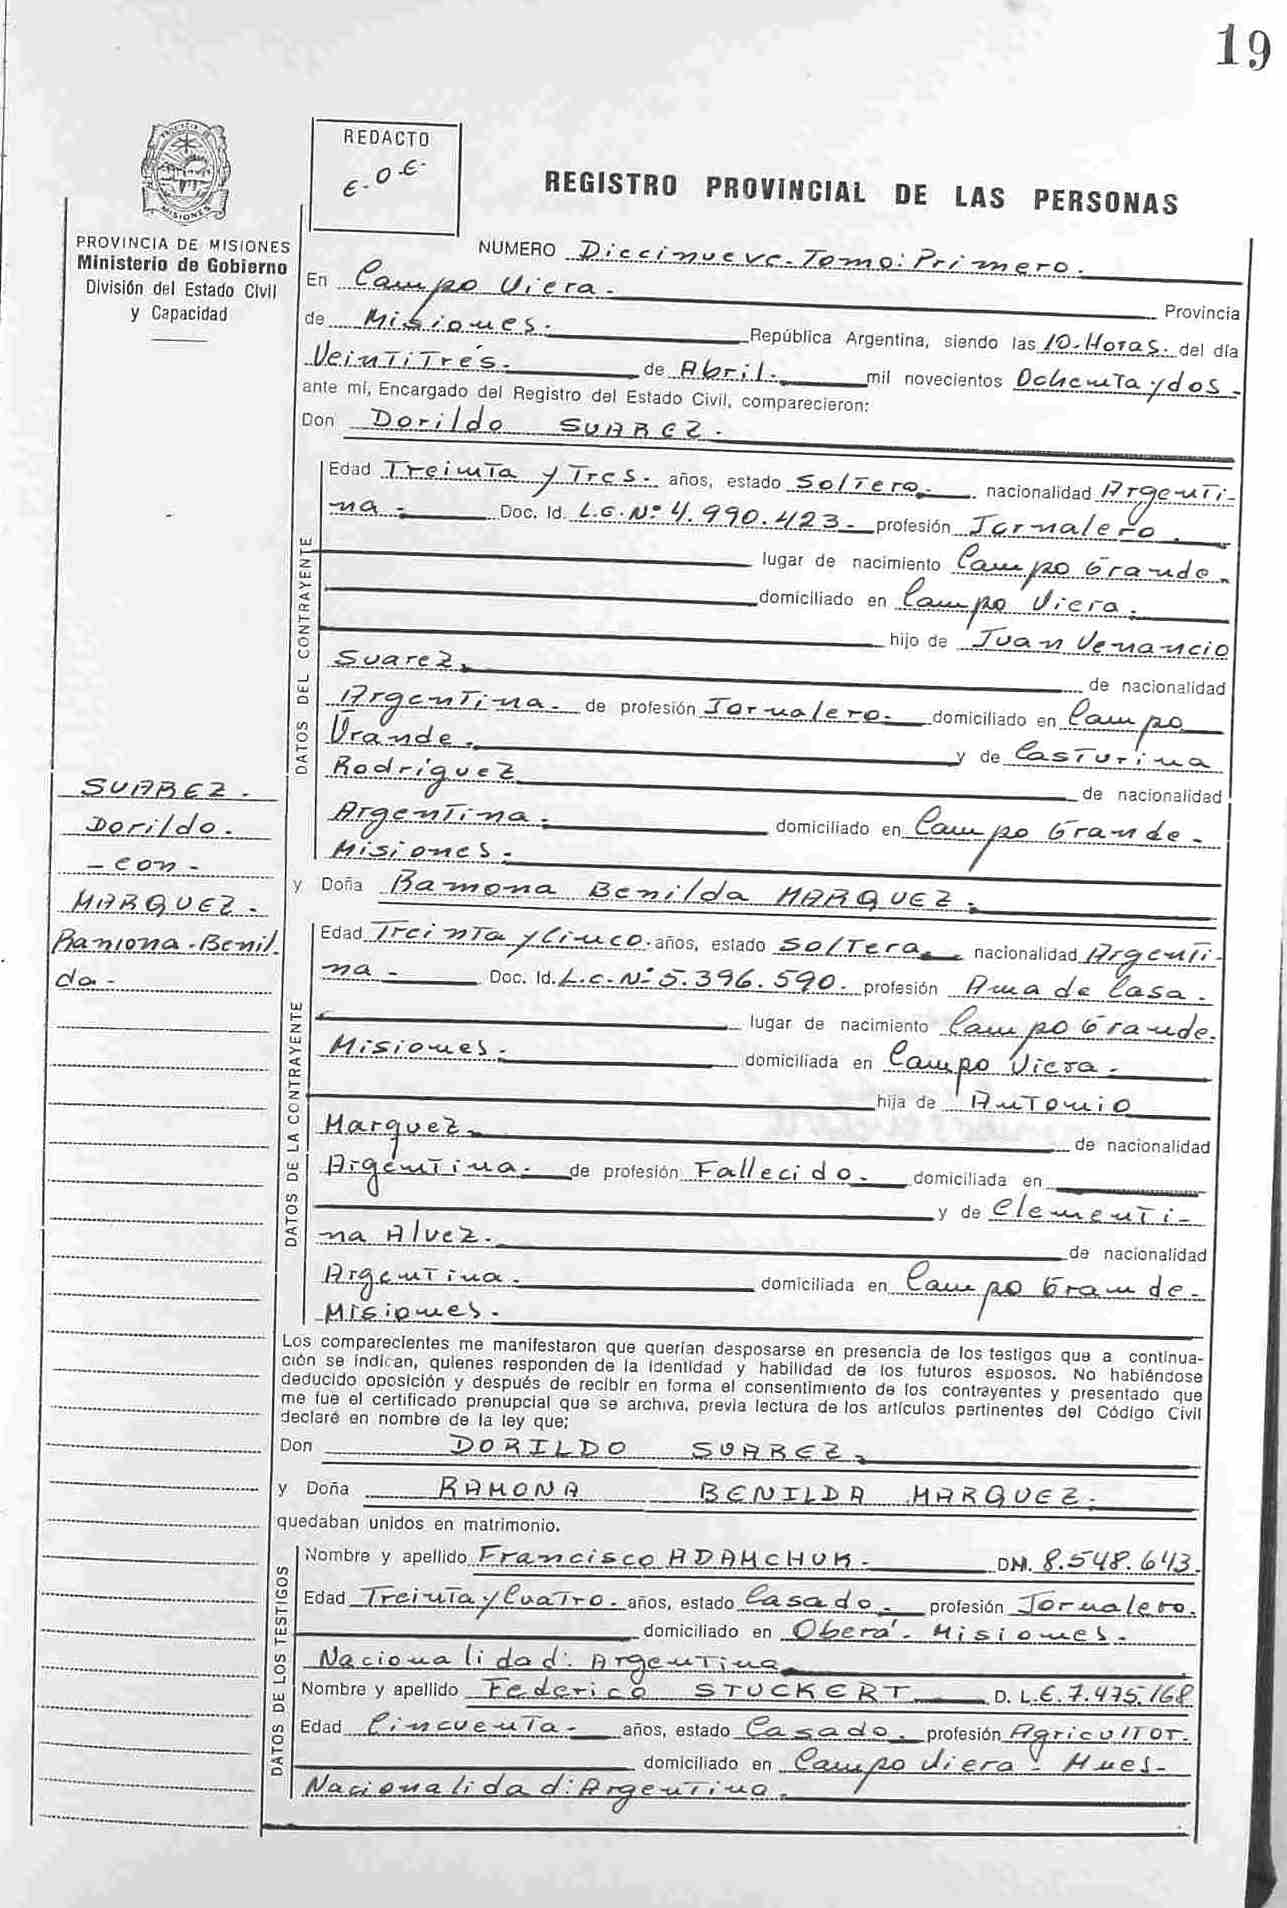 19
PROVINCIA DE MISIONES
Ministerio de Gobierno
División del Estado Civil
y Capacidad
REDACTO
E.O.E.
REGISTRO PROVINCIAL DE LAS PERSONAS
NUMERO Diecinueve. Tomo: Primero.
En Campo Viera. Provincia
de Misiones. República Argentina, siendo las 10. Horas. del día
Veintitrés. de Abril. mil novecientos Ochenta y dos.
ante mí, Encargado del Registro del Estado Civil, comparecieron:
Don Dorildo SUAREZ.
DATOS DEL CONTRAYENTE
Edad Treinta y Tres. años, estado Soltero. nacionalidad Argenti-
na. Doc. Id. L.E. Nº 4.990.423. profesión Jornalero.
lugar de nacimiento Campo Grande.
domiciliado en Campo Viera.
hijo de Juan Venancio
Suarez. de nacionalidad
Argentina. de profesión Jornalero. domiciliado en Campo
Grande. y de Casturina
Rodriguez de nacionalidad
Argentina. domiciliado en Campo Grande.
Misiones.
SUAREZ.
Dorildo.
- con -
MARQUEZ.
Ramona. Benil.
da.
y Doña Ramona Benilda MARQUEZ.
DATOS DE LA CONTRAYENTE
Edad Treinta y Cinco. años, estado Soltera. nacionalidad Argenti-
na. Doc. Id. L.C. Nº 5.396.590. profesión Ama de Casa.
lugar de nacimiento Campo Grande.
Misiones. domiciliada en Campo Viera.
hija de Antonio
Marquez. de nacionalidad
Argentina. de profesión Fallecido. domiciliada en
y de Clementi-
na Alvez. de nacionalidad
Argentina. domiciliada en Campo Grande.
Misiones.
Los comparecientes me manifestaron que querían desposarse en presencia de los testigos que a continua-
ción se indican, quienes responden de la identidad y habilidad de los futuros esposos. No habiéndose
deducido oposición y después de recibir en forma el consentimiento de los contrayentes y presentado que
me fue el certificado prenupcial que se archiva, previa lectura de los artículos pertinentes del Código Civil
declaré en nombre de la ley que;
Don DORILDO SUAREZ.
y Doña RAMONA BENILDA MARQUEZ.
quedaban unidos en matrimonio.
DATOS DE LOS TESTIGOS
Nombre y apellido Francisco ADAMCHUK. DNI. 8.548.643.
Edad Treinta y Cuatro. años, estado Casado. profesión Jornalero.
domiciliado en Oberá. Misiones.
Nacionalidad: Argentina
Nombre y apellido Federico STUCKERT D. L.E. 7.475.168
Edad Cincuenta. años, estado Casado. profesión Agricultor.
domiciliado en Campo Viera - Mnes.
Nacionalidad: Argentina.